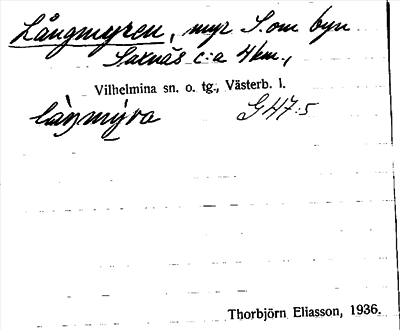 Långmyren, myr S. om byn
Saxnäs c:a 4 km.,
Vilhelmina sn. o. tg., Västerb. l.
làŋmýra G47:5
Thorbjörn Eliasson, 1936.